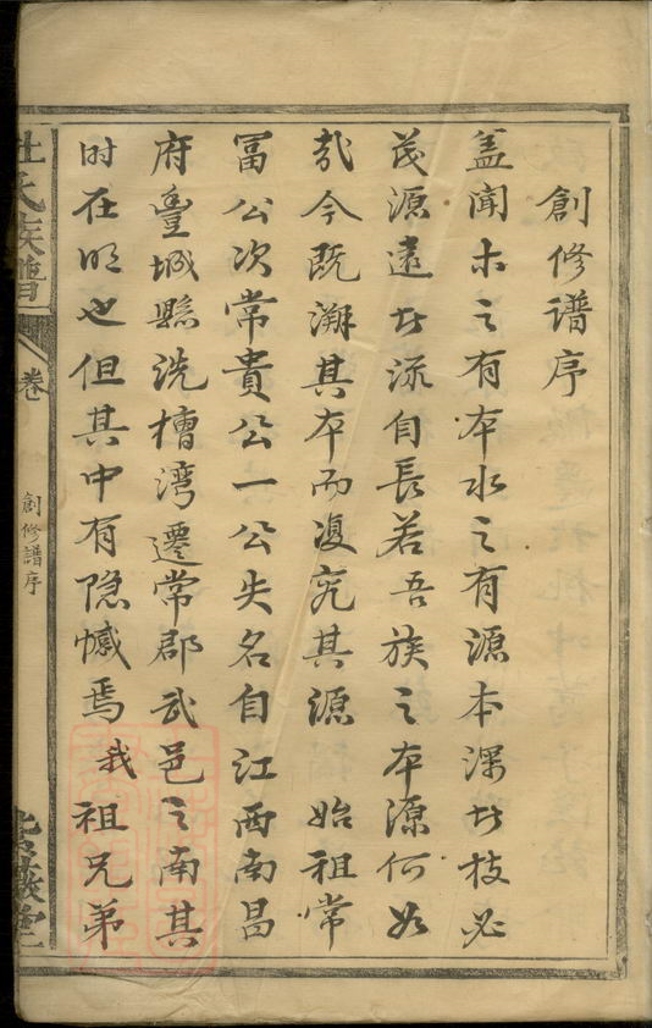 創修谱序
盖聞木之有本水之有源本深者枝必
茂源遠者流自長若吾族之本源何如
哉今既溯其本而复究其源 始祖常
冨公次常貴公一公失名自江西南昌
府豐城縣洗槽湾遷常郡武邑之南其
时在明也但其中有隐憾焉 我祖兄弟
杜氏族譜
卷
創修譜序
義堂